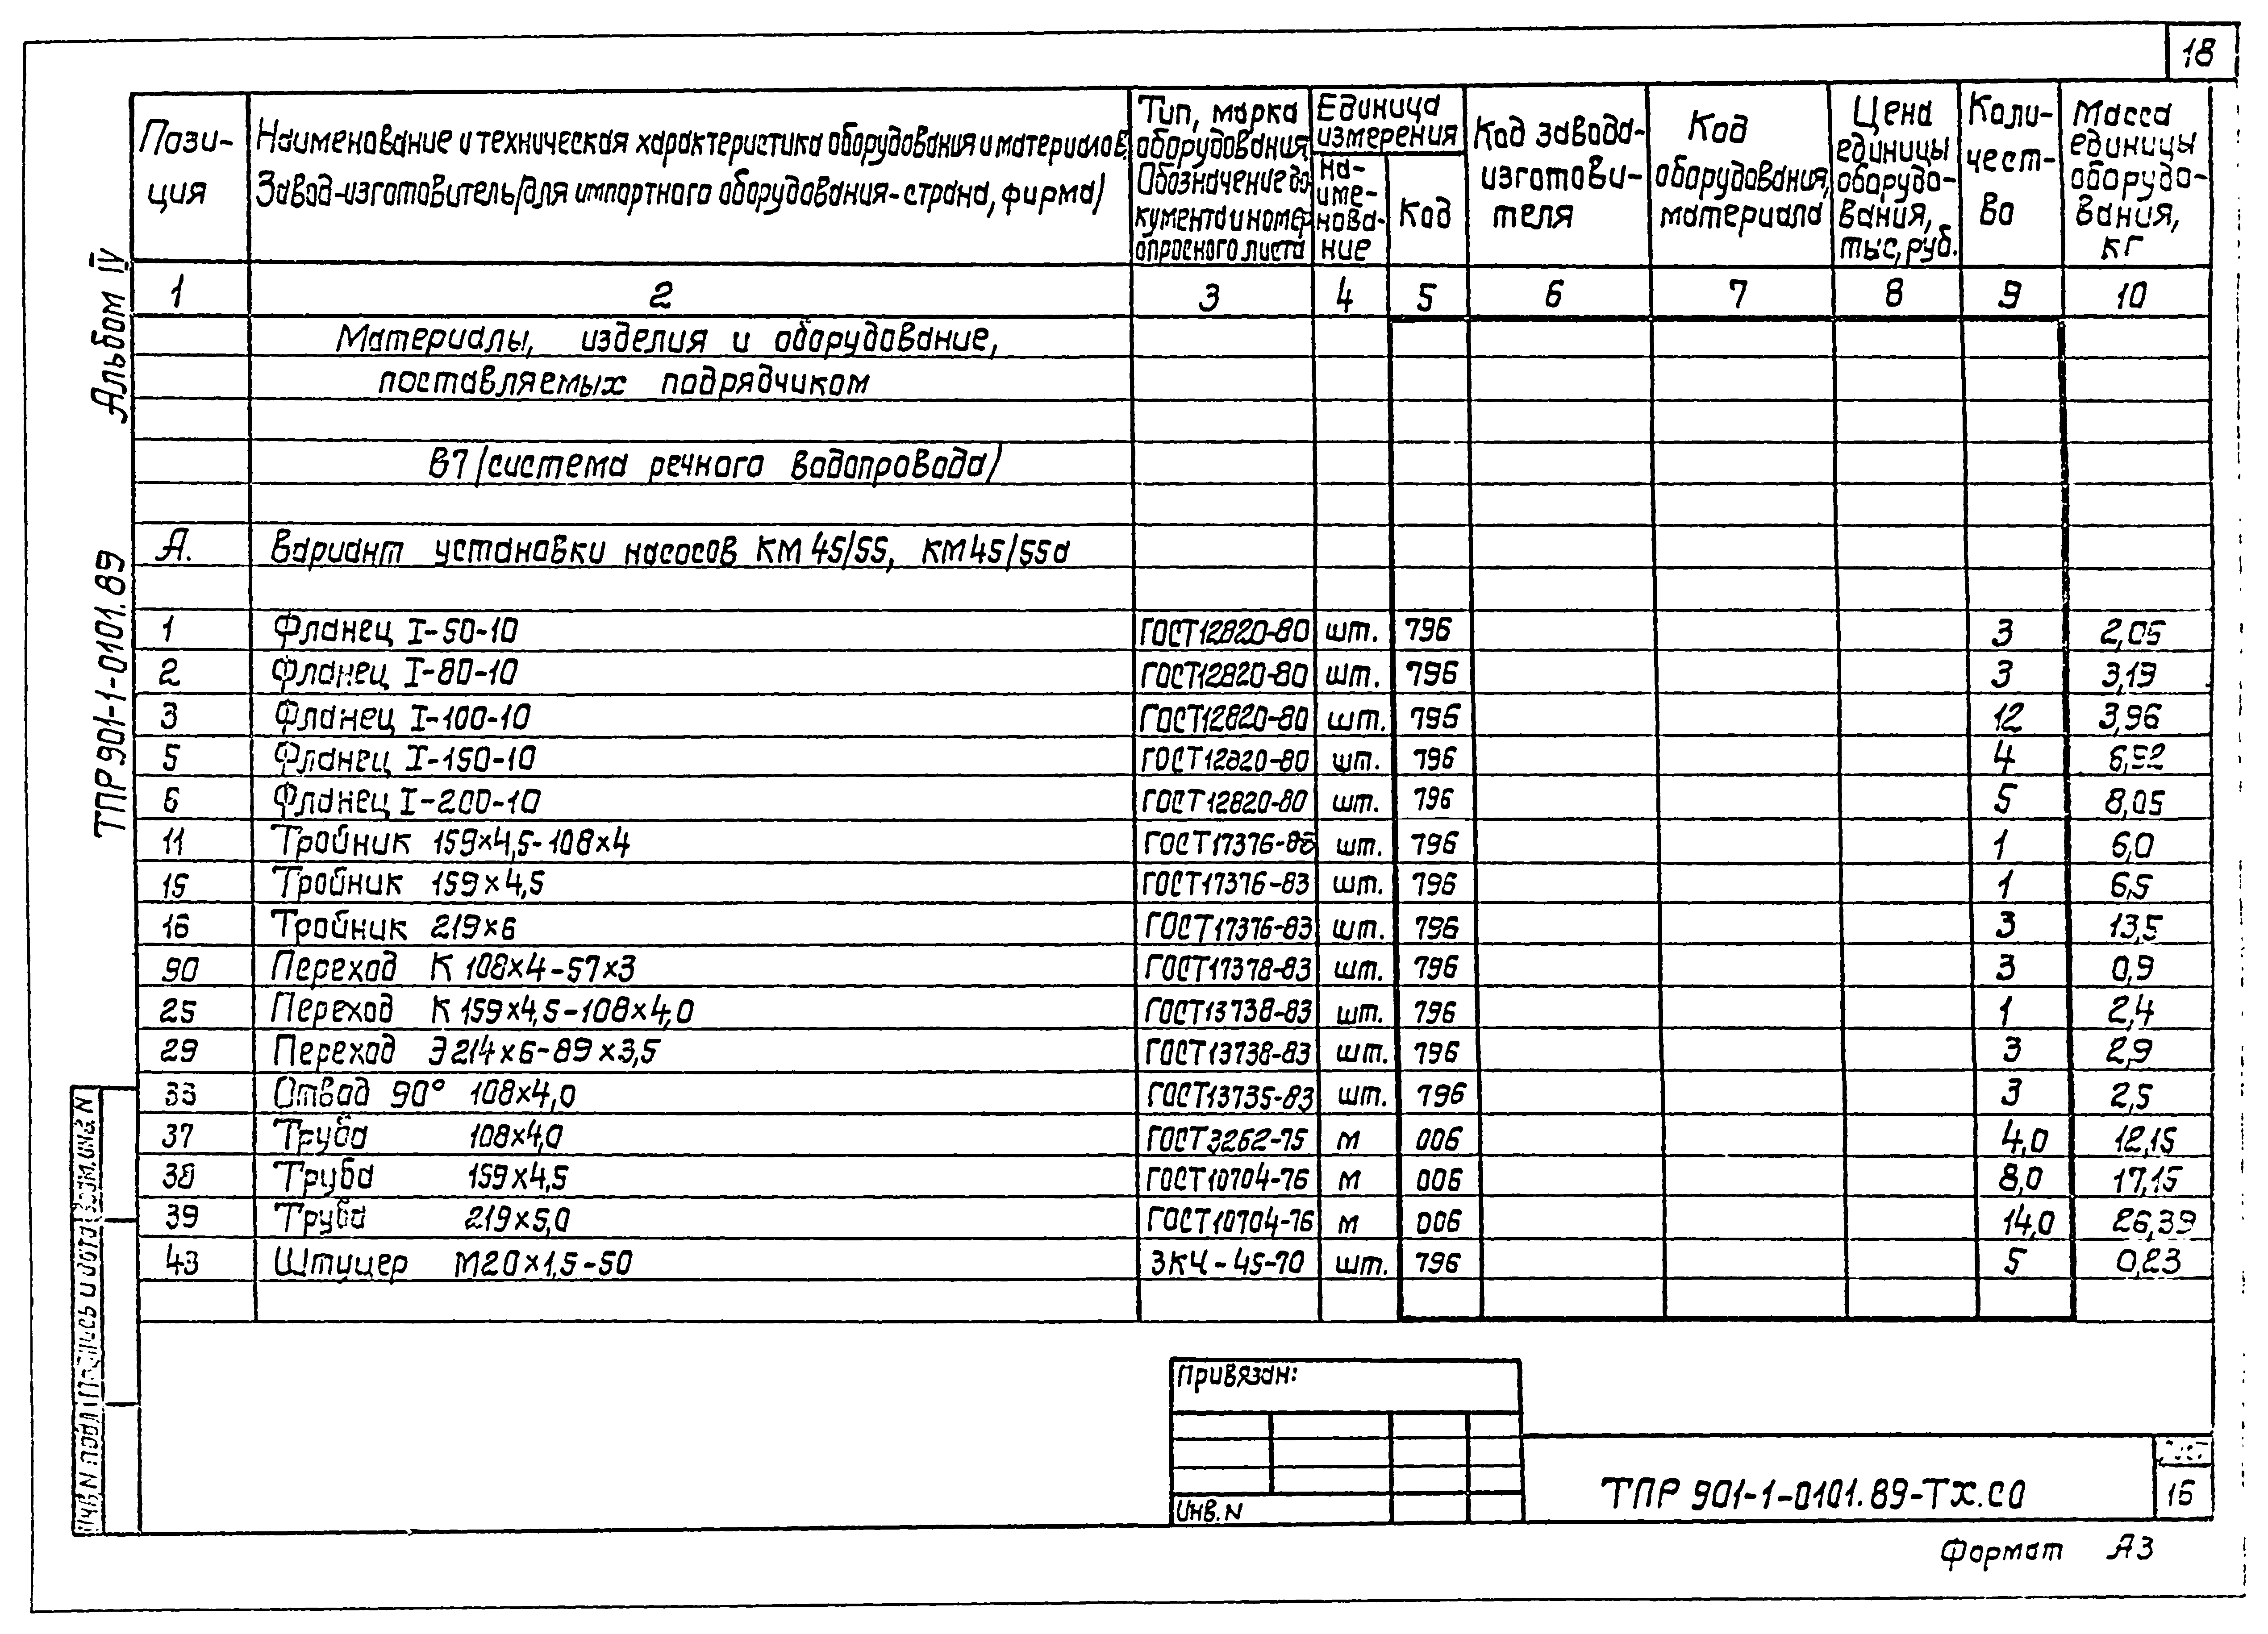 18
Пози-
ция
Наименование и техническая характеристика оборудования и материалов.
Завод-изготовитель/для импортного оборудования-страна, фирма/
Тип, марка
оборудования.
Обозначение до-
кумента и номер
опросного листа
Единица
измерения
На-
име-
нова-
ние
Код
Код завода-
изготови-
теля
Код
оборудования,
материала
Цена
единицы
оборудо-
вания,
тыс,руб.
Коли-
чест-
во
Масса
единицы
оборудо-
вания,
кг
1 2 3 4 5 6 7 8 9 10
Материалы, изделия и оборудование,
поставляемых подрядчиком
В7/система речного водопровода/
А. Вариант установки насосов КМ 45/55, КМ45/55а
1 Фланец I-50-10 ГОСТ12820-80 шт. 796 3 2,05
2 Фланец I-80-10 ГОСТ12820-80 шт. 796 3 3,19
3 Фланец I-100-10 ГОСТ12820-80 шт. 796 12 3,96
5 Фланец I-150-10 ГОСТ12820-80 шт. 796 4 6,92
6 Фланец I-200-10 ГОСТ12820-80 шт. 796 5 8,05
11 Тройник 159×4,5-108×4 ГОСТ17376-83 шт. 796 1 6,0
15 Тройник 159×4,5 ГОСТ17376-83 шт. 796 1 6,5
16 Тройник 219×6 ГОСТ17376-83 шт. 796 3 13,5
90 Переход К 108×4-57×3 ГОСТ17378-83 шт. 796 3 0,9
25 Переход К 159×4,5-108×4,0 ГОСТ13738-83 шт. 796 1 2,4
29 Переход Э 214×6-89×3,5 ГОСТ13738-83 шт. 796 3 2,9
33 Отвод 90° 108×4,0 ГОСТ13735-83 шт. 796 3 2,5
37 Труба 108×4,0 ГОСТ3262-75 м 006 4,0 12,15
38 Труба 159×4,5 ГОСТ10704-76 м 006 8,0 17,15
39 Труба 219×5,0 ГОСТ10704-76 м 006 14,0 26,39
43 Штуцер М20×1,5-50 ЗКЧ-45-70 шт. 796 5 0,23
Альбом IV
ТПР 901-1-0101.89
Взам.инв.N
Подпись и дата
Инв.N подл.
Привязан:
Инв.N
ТПР 901-1-0101.89-ТХ.СО
Лист
16
Формат А3